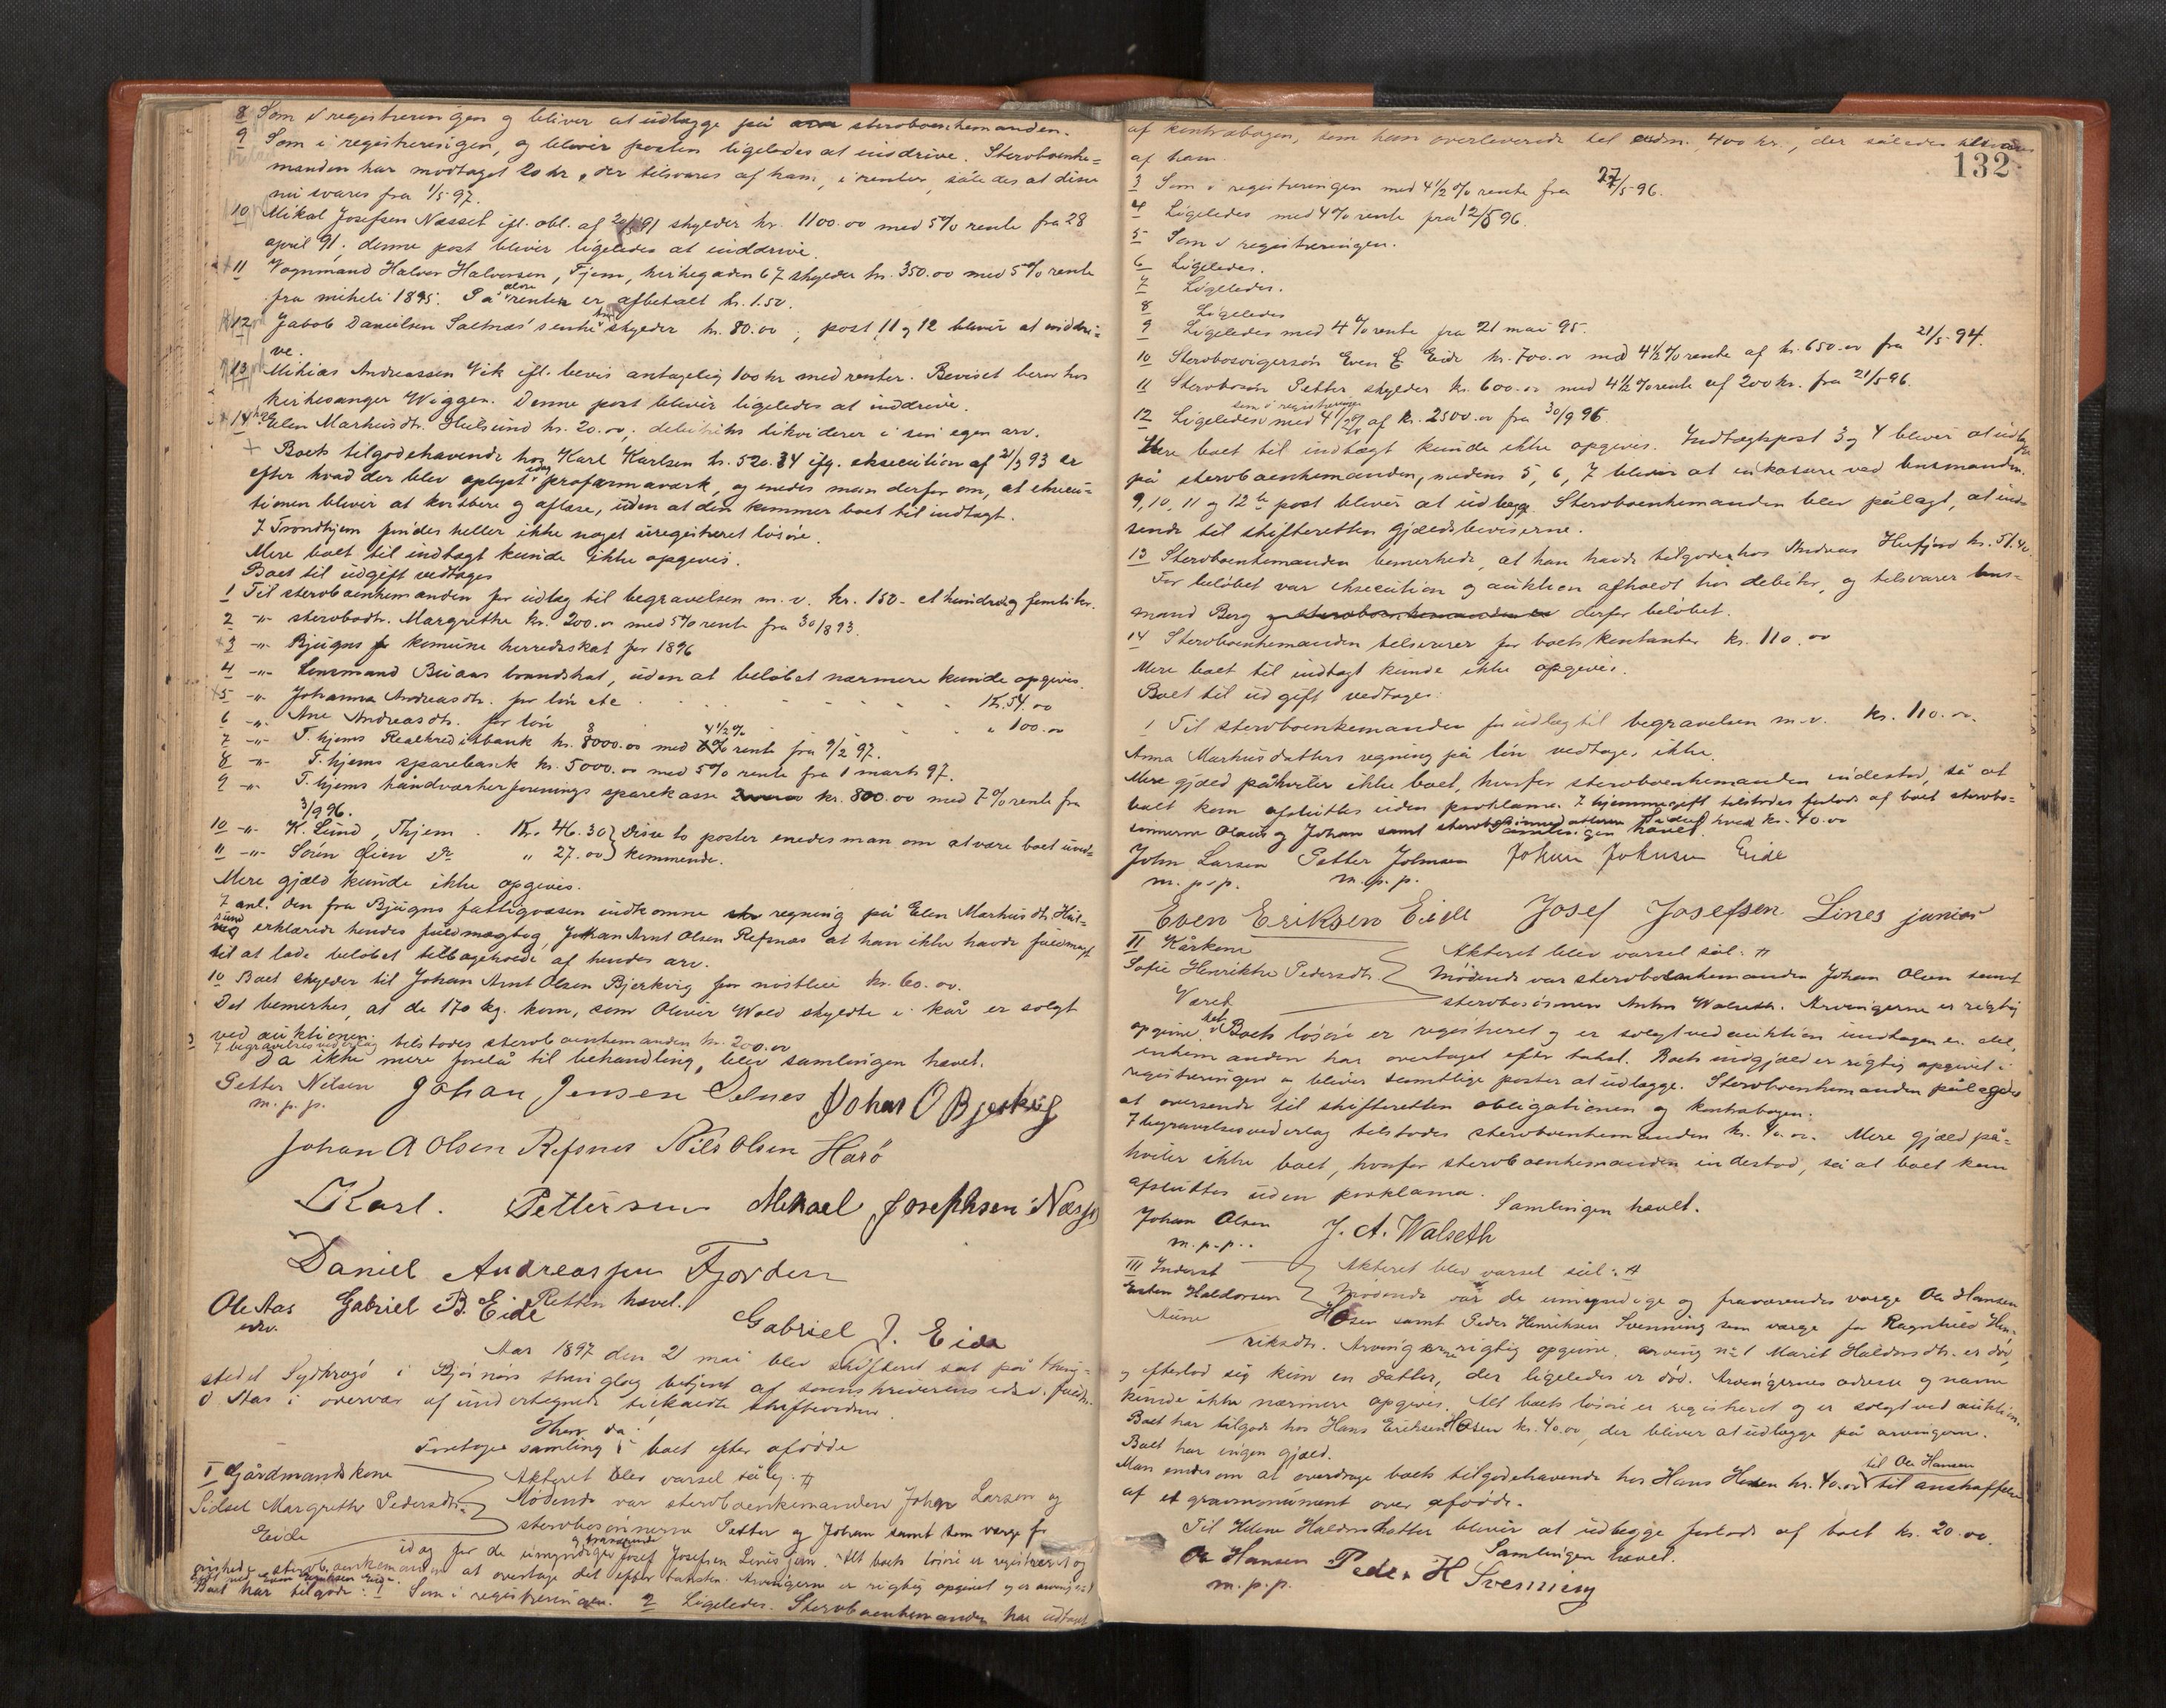 8 Som i registreringen og bliver at udlægge på stervboenkemanden.
9 Som i registreringen, og blever posten ligeledes at inddrive. Stervboenke=
manden har modtaget 20 kr, der tilsvares af ham, i renter, således at disse
nu svares fra 1/5 97.
10 Mikal Josefsen Næsset ifl. obl. af 20/5 91 skylder kr. 1100.00 med 5% rente fra 28
april 91; denne post bliver ligeledes at inddrive.
11 Vognmand Halvor Halvorsen, Tjem, kirkegaden 67 skylder kr. 350.00 med 5% rente
fra mikeli 1895. På renten er afbetalt kr. 1.50.
12 Jakob Danielsen Saltnæs' enke skylder kr. 80.00; post 11 og 12 blever at inddri=
ve.
13 Mikias Andreassen Vik ifl. bevis antagelig 100 kr med renter. Beviset beror hos
kirkesanger Wiggen. Denne post bliver ligeledes at inddrive.
14 Elen Markusdtr. Hulsund kr. 20.00; likviderer i sin egen arv.
+ Boets tilgodehavende hos Karl Karlsen kr. 520.34 ifg. eksecution af 2/3 93 er
efter hvad der blev oplyst idag proformaværk, og enedes man derfor om, at eksecu=
tionen blever at kvittere og aflæse, uden at den kommer boet til indtægt.
I Trondhjem findes heller ikke noget uregistreret løsøre.
Mere boet til indtægt kunde ikke opgives.
Boet til udgift vedtages
1 Til stervboenkemanden for udlæg til begravelsen m.v. kr. 150 - et hundrede og femti kr.
2 -"- stervbodtr. Margrethe kr. 200.00 med 5% rente fra 30/8 93.
3 -"- Bjugns komune herredsskat for 1896
4 -"- Lensmand Buaas brandskat, uden at beløbet nærmere kunde opgives.
5 -"- Johanna Andreasdtr. for løn etc kr. 54.00
6 -"- Ane Andreasdtr. for løn " 100.00
7 -"- T.hjems Realkreditbank kr. 8000.00 med 4 1/2 % rente fra 9/2 97.
8 -"- T.hjems sparebank kr. 5000.00 med 5% rente fra 1 marts 97.
9 -"- T.hjems håndværkerforenings sparekasse kr. 800.00 med 7% rente fra
3/9 96.
10 -"- K. Lund, Thjem . kr. 46.30 } Disse to poster enedes man om at være boet uved=
11 -"- Søren Øien Do " 27.00 } kommende.
Mere gjæld kunde ikke opgives.
I anl. den fra Bjugns fattigvæsen indkomne regning på Elen Markusdtr. Hul=
sund erklærede hendes fuldmægtig, Johan Arnt Olsen Refsnæs at han ikke havde fuldmagt
til at lade beløbet tilbageholde af hendes arv.
10 Boet skylder til Johan Arnt Olsen Bjerkvig for kr. 60.00.
Det bemerkes, at de 170 kg. korn, som Oliver Wold skyldte i kår er solgt
ved auktionen.
I begravelsesvederlag tilstodes stervboenkemanden kr. 200.00
Da ikke mere forelå til behandling, blev samlingen hævet.
Petter Nilsen Johan Jensen Selnes Johan O Bjerkvig
m. p. p.
Johan A Olsen Refsnes Nils Olsen Harø
Karl. Pettersen Mikael Josephsen Næss
Daniel Andreassen Fjorden
Retten hævet.
Ole Aas Gabriel B. Eide Gabriel J. Eide
edsv.
Aar 1897 den 21 mai blev skifteret sat på thing=
stedet Sydkrogø i Bjørnørs thinglag betjent af sorenskriverens edsv. fuldm.
O Aas i overvær af undertegnede tilkaldte skiftevidner
Hvor da:
Foretoges samling i boet efter afdøde
I Gårdmandskone
Sidsel Margrethe Pedersdtr.
Eide
Akteret blev varsel sålg. #
Mødende var stervboenkemanden Johan Larsen og
stervbosønnerne Petter og Johan samt som værge for
idag for de umyndige og fraværende Josef Josefsen Lines jun. Alt boets løsøre er registreret og
ønskede stervboenkemanden at overtage det efter taksten. Arvingerne er rigtig opgivet og er arving
gift med Even Eriksen Eide.
Boet har tilgode: 1 Som i registreringen. 2 Ligeledes. Stervboenkemanden har udtaget
132
af kontrabogen, som han overleverede til edm. 400 kr., der således tilsvares
af ham.
3 Som i registreringen med 4 1/2 % rente fra 27/5 96.
4 Ligeledes med 4% rente fra 12/5 96.
5 Som i registreringen.
6 Ligeledes.
7 Ligeledes.
8 Ligeledes
9 Ligeledes med 4% rente fra 21 mai 95.
10 Stervbosvigersøn Even E Eide kr. 700.00 med 4 1/2 % rente af kr. 650.00 fra 21/5 94.
11 Stervbosøn Petter skylder kr. 600.00 med 4 1/2 % rente af 200 kr. fra 21/5 96.
12 Ligeledes som i registreringen med 4 1/2 % af kr. 2500.00 fra 30/9 96
Mere boet til indtægt kunde ikke opgives. Indtægtspost 3 og 4 blever at udlægge
på stervboenkemanden, medens 5, 6, 7 blever at inkassere ved lensmanden.
9, 10, 11 og 12te post blever at udlægge. Stervboenkemanden blev pålagt, at ind=
sende til skifteretten gjældsbeviserne.
13 Stervboenkemanden bemerkede, at han havde tilgode hos Andreas Hufjord kr. 51.40.
For beløbet var eksecution og auktion afholdt hos debitor, og tilsvarer lens=
mand Berg og stervboenkemanden derfor beløbet.
14 Stervboenkemanden tilsvarer for boets kontanter kr. 110.00
Mere boet til indtægt kunde ikke opgives.
Boet til udgift vedtages:
1 Til stervboenkemanden for udlæg til begravelsen m.v. kr. 110.00.
Anna Markusdatters regning på løn vedtages ikke.
Mere gjæld påhviler ikke boet, hvorfor stervboenkemanden indestod, så at
boet kan afsluttes uden proklama. I hjemmegift tilstodes forlods af boet stervbo=
sønnerne Olaus og Johan samt hver kr. 40.00
Samlingen hævet.
John Larsen Petter Johnsen Johan Johnsen Eide
m. p. p. m. p. p.
Even Eriksen Eide Josef Josefsen Lines junior
II Kårkone
Sofie Henrikke Pedersdtr.
Været
Akteret blev varsel sål: #
Mødende var stervboenkemanden Johan Olsen samt
stervbosønnen Anton Walseth. Arvingerne er rigtig
opgivne. Boets løsøre er registreret og er solgt ved auktion undtagen en del,
enkemanden har overtaget efter takst. Boets indgjæld er rigtig opgivet i
registreringen og blever samtlige poster at udlægge. Stervboenkemanden pålagdes
at oversende til skifteretten obligationen og kontrabogen.
I begravelsesvederlag tilstodes stervboenkemanden kr. 40.00. Mere gjæld på=
hviler ikke boet, hvorfor stervboenkemanden indestod, så at boet kan
afsluttes uden proklama.
Samlingen hævet.
Johan Olsen J. A. Walseth
m. p. p.
III Inderst
Esten Haldorsen
Aune
Akteret blev varsel sål: #
Mødende var de umyndige og fraværendes værge Ole Hansen
Hosen samt Peder Henriksen Svenning som værge for Ragnhild Hen=
riksdtr. Arvingerne rigtig opgivne, arving no 1 Marit Haldorsdtr. er død,
og efterlod sig kun en datter, der ligeledes er død. Arvingernes adresse og navne
kunde ikke nærmere opgives. Alt boets løsøre er registreret og er solgt ved auktion.
Boet har tilgode hos Hans Eriksen Hosen kr. 40.00, der bliver at udlægge på arvingerne.
Boet har ingen gjæld.
Man enedes om at overdrage boets tilgodehavende hos Hans Hosen kr. 40.00 til Ole Hansen til anskaffelse
af et gravmonument over afdøde.
Til Helene Haldorsdatter bliver at udlægge forlods af boet kr. 20.00.
Samlingen hævet.
Ole Hansen Peder H Svenning
m. p. p.